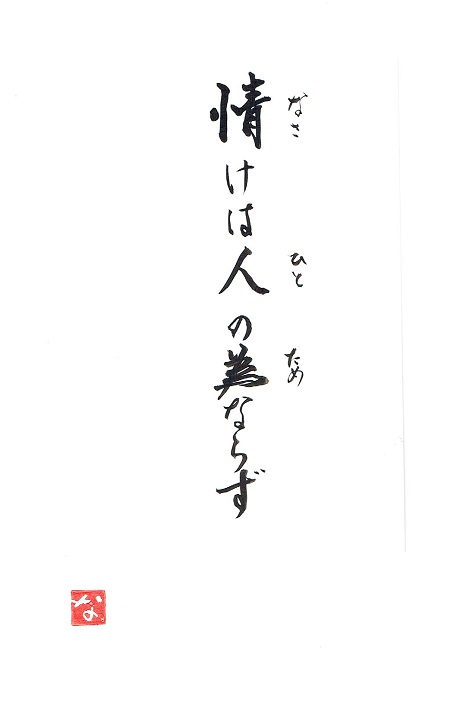 情けは人の為ならず
なさ
ひと
ため
な